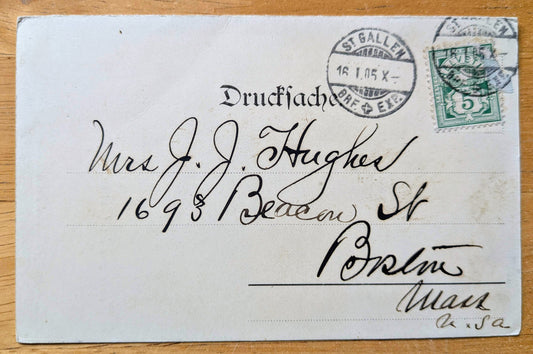 ST GALLEN
16.I.05.X–
BRF. EXP.
ST GALLEN
16.I.05.X–
5
Drucksache
Mrs J. J. Hughes
1693 Beacon St
Boston
Mass
U.S.A